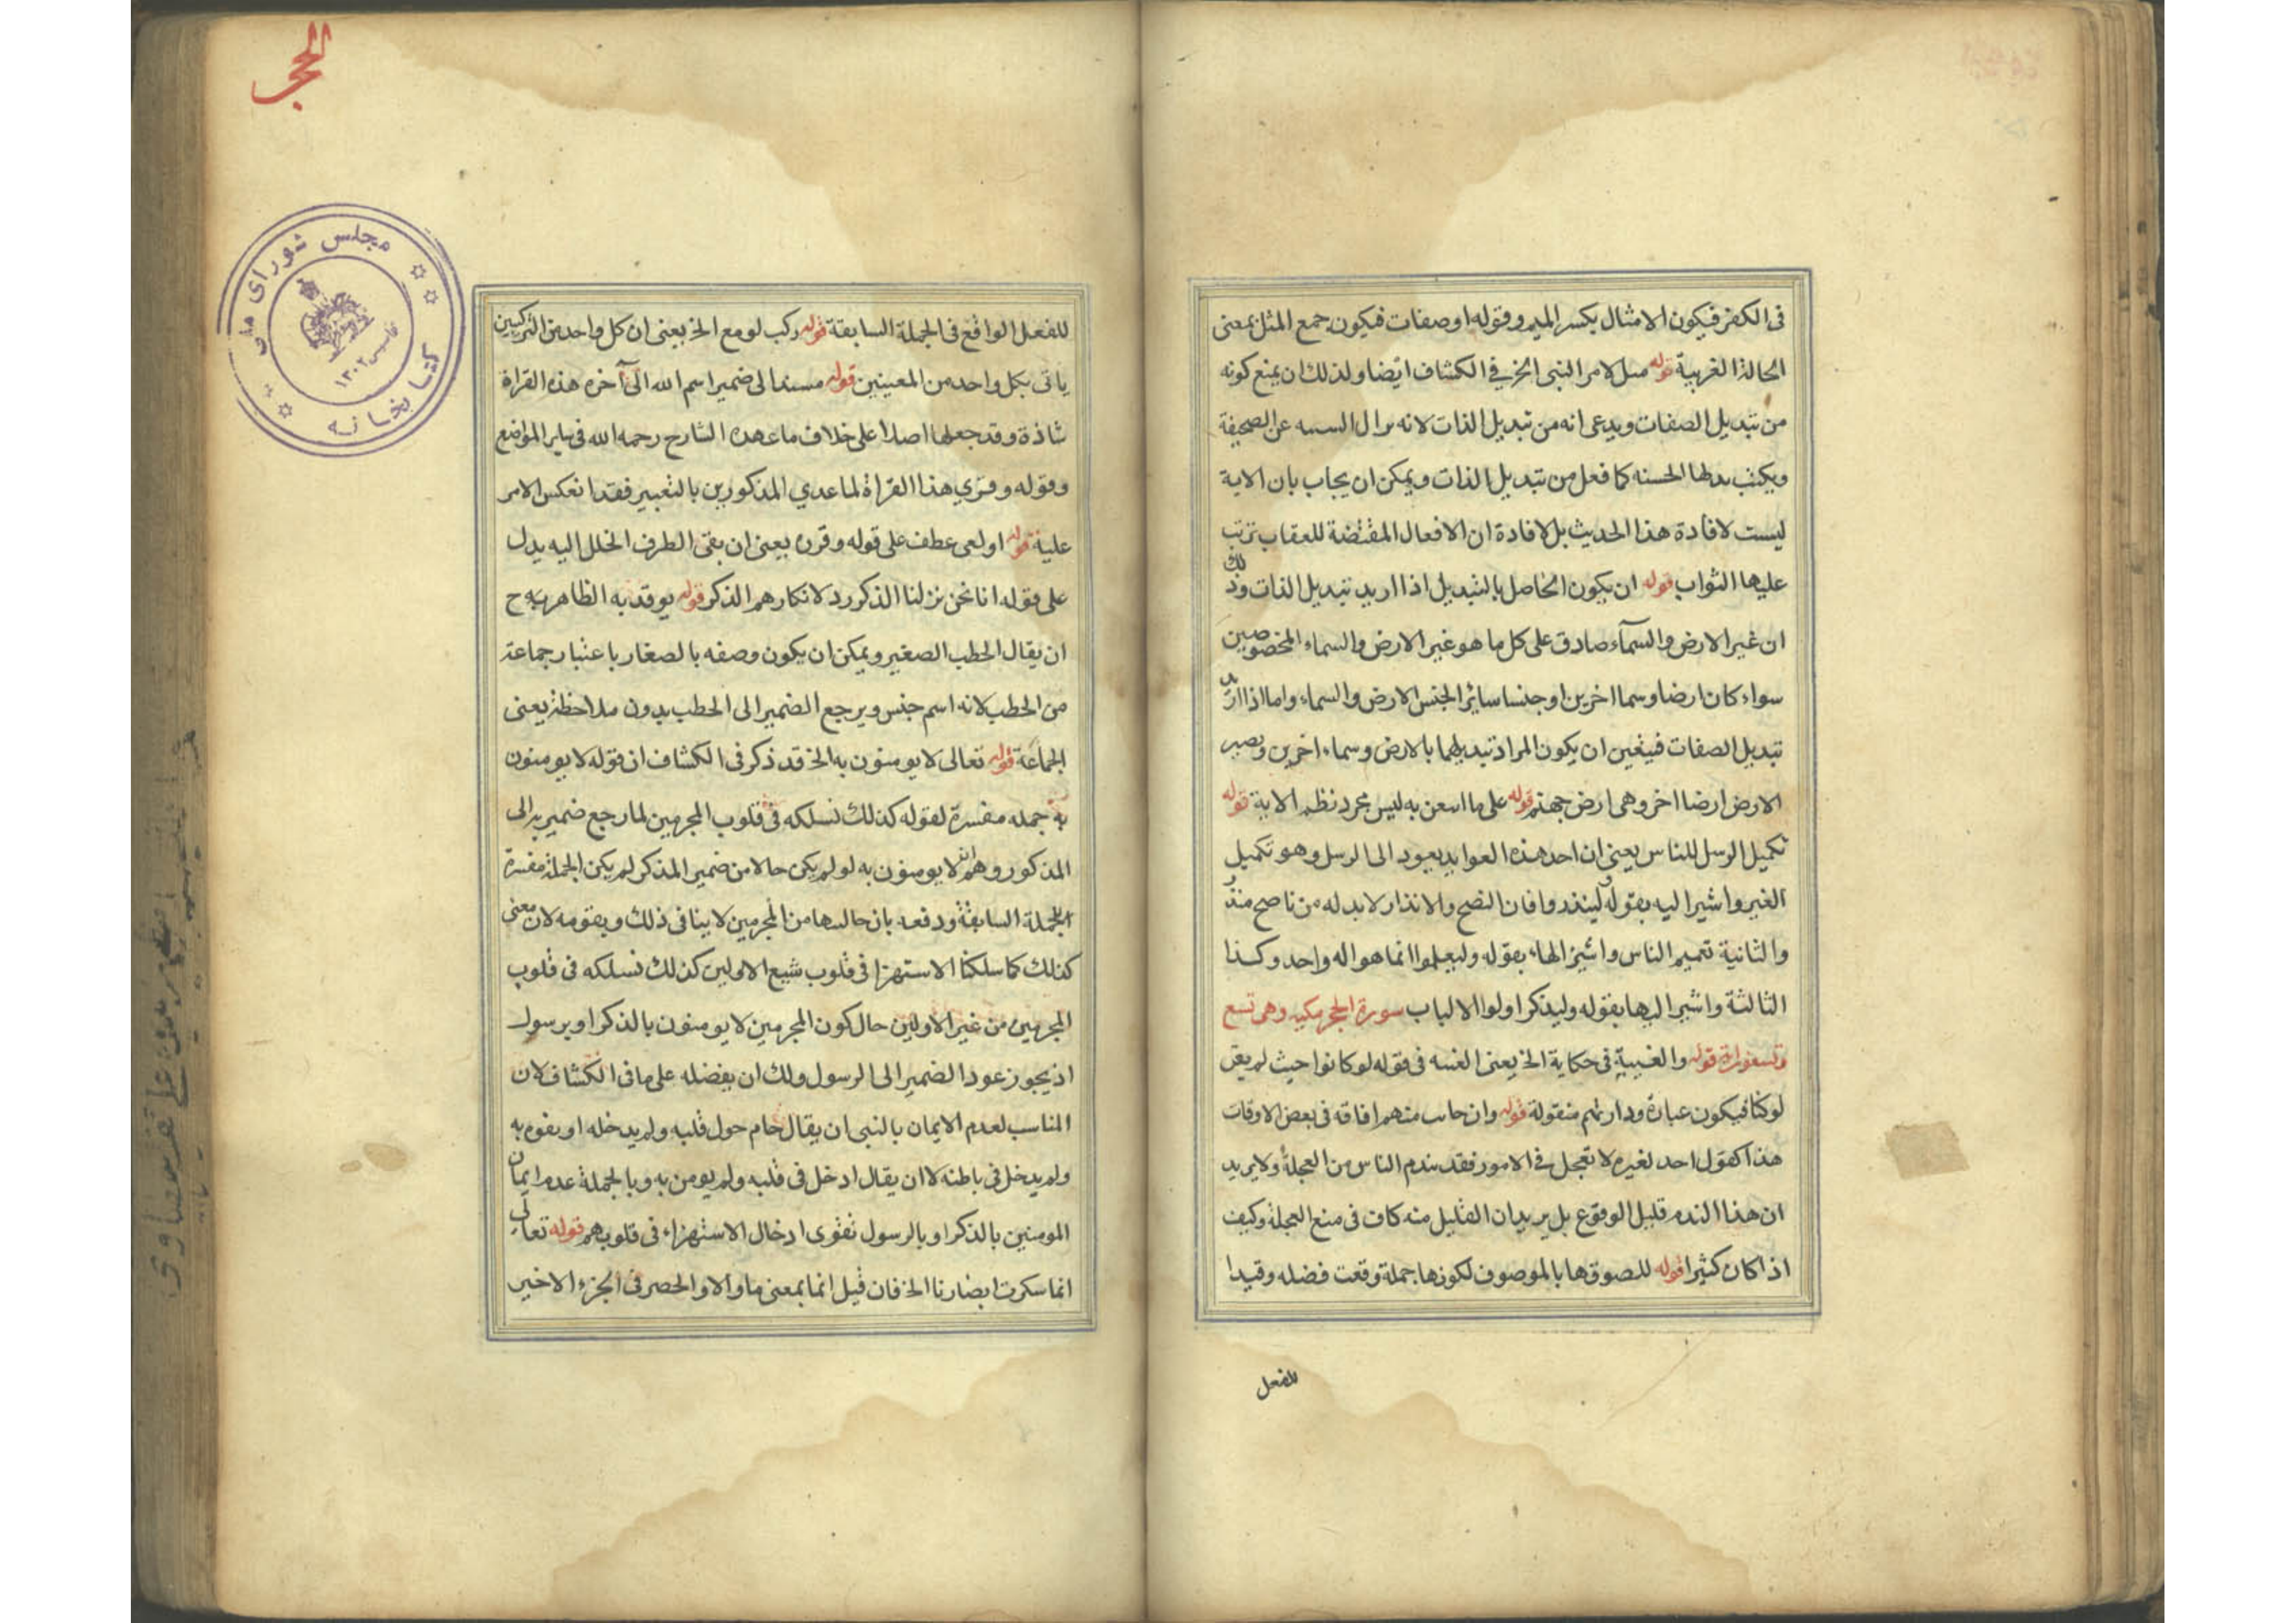 فى الكفر فيكون الامثال بكسر الميم وقوله او صفات فيكون جمع المثل بمعنى
الحالة الغريبة قوله مثل لامر النبى الخ فى الكشاف ايضا ولذلك ان يمنع كونه
من تبديل الصفات ويدعى انه من تبديل الذات لانه عن الصحيفة
ويكتب بدلها الحسنه كما فعل من تبديل الذات ويمكن ان يجاب بان الاية
ليست لافادة هذا الحديث بل لافادة ان الافعال المقتضة للعقاب ترتب
عليها الثواب قوله ان يكون الحاصل بالتبديل اذا اريد تبديل الذات وذلك
ان غير الارض والسمآء صادق على كل ما هو غير الارض والسماء المخصوصين
سواء كان ارضا وسما اخرين او جنسا سائر الجنس الارض والسماء واما اذا ارد
تبديل الصفات فيتعين ان يكون المراد تبديلهما بالارض وسماء اخرين ويصير
الارض ارضا اخر وهى ارض جهنم قوله على ما اسعن به ليس مجرد نظم الاية قوله
تكميل الرسل للناس يعنى ان احد هذه العوايد يعود الى الرسل وهو تكميل
الغير واشير اليه بقوله لينذروا فان النصح والانذار لابد له من ناصح منذر
والثانية تعميم الناس واشير الهاء بقوله وليعلموا انما هو اله واحد وكذا
الثالثة واشير اليها بقوله وليذكر اولوا الالباب سورة الحجر مكيه وهى تسع
وتسعون اية قوله والغيبية فى حكاية الخ يعنى الغسه فى قوله لو كانوا حيث لم يقل
لو كنا فيكون عبارة ودارتهم منقولة قوله وان حانت منهم افاقه فى بعض الاوقات
هذا كقول احد لغيره لا تعجل فى الامور فقد يندم الناس من العجلة ولا يريد
ان هذا الندم قليل الوقوع بل يريد ان القليل منه كاف فى منع العجلة وكيف
اذا كان كثيرا قوله للصوقها بالموصوف لكونها جملة وقعت فضله وقيدا
للفعل
الحجر
للفعل الواقع فى الجملة السابقة قوله ركب لو مع الخ يعنى ان كل واحد من التركيبين
ياتى بكل واحد من المعنيين قوله مسندا الى ضمير اسم الله الى آخره هذه القراة
شاذة وقد جعلها اصلا على خلاف ما عهده الشارح رحمه الله فى ساير المواضع
وقوله وقرى هذا القراة لما عدى المذكورين بالتغيير فقد انعكس الامر
عليه قوله او لعى عطف على قوله وقرن يعنى ان بقى الطرف الخلل اليه يدل
على قوله انا نحن نزلنا الذكر رد لانكارهم الذكر قوله يوقد به الظاهر به ح
ان يقال الحطب الصغير ويمكن ان يكون وصفه بالصغار باعتبار جماعة
من الحطب لانه اسم جنس ويرجع الضمير الى الحطب بدون ملاحظة يعنى
الجماعة قوله تعالى لا يومنون به الخ قد ذكر فى الكشاف ان قوله لا يومنون
به جمله مفسرة لقوله كذلك نسلكه فى قلوب المجرمين لما رجع ضمير به الى
المذكور وهم لا يومنون به لو لم يكن حالا من ضمير المذكر لم يكن الجملة مفسرة
للجملة السابقة ودفعه بان حالسها من المجرمين لا ينافى ذلك ويقومه لان معنى
كذلك كما سلكنا الاستهزا فى قلوب شيع الاولين كذلك نسلكه فى قلوب
المجرمين من غير الاولين حال كون المجرمين لا يومنون بالذكر او برسول
اذ يجوز عود الضمير الى الرسول ولك ان يفضله على ما فى الكشاف لان
المناسب لعدم الايمان بالنبى ان يقال حام حول قلبه ولم يدخله او يفوه به
ولم يدخل فى باطنه لا ان يقال ادخل فى قلبه ولم يومن به وبالجملة عدم ايمان
المومنين بالذكر او بالرسول تقوى ادخال الاستهزاء فى قلوبهم قوله تعالى
انما سكرت ابصارنا الخ فان قيل انما بمعنى ما والا والحصر فى الجزء الاخير
مجلس شوراى ملى
كتابخانه
تاسيس ١٣٠٢